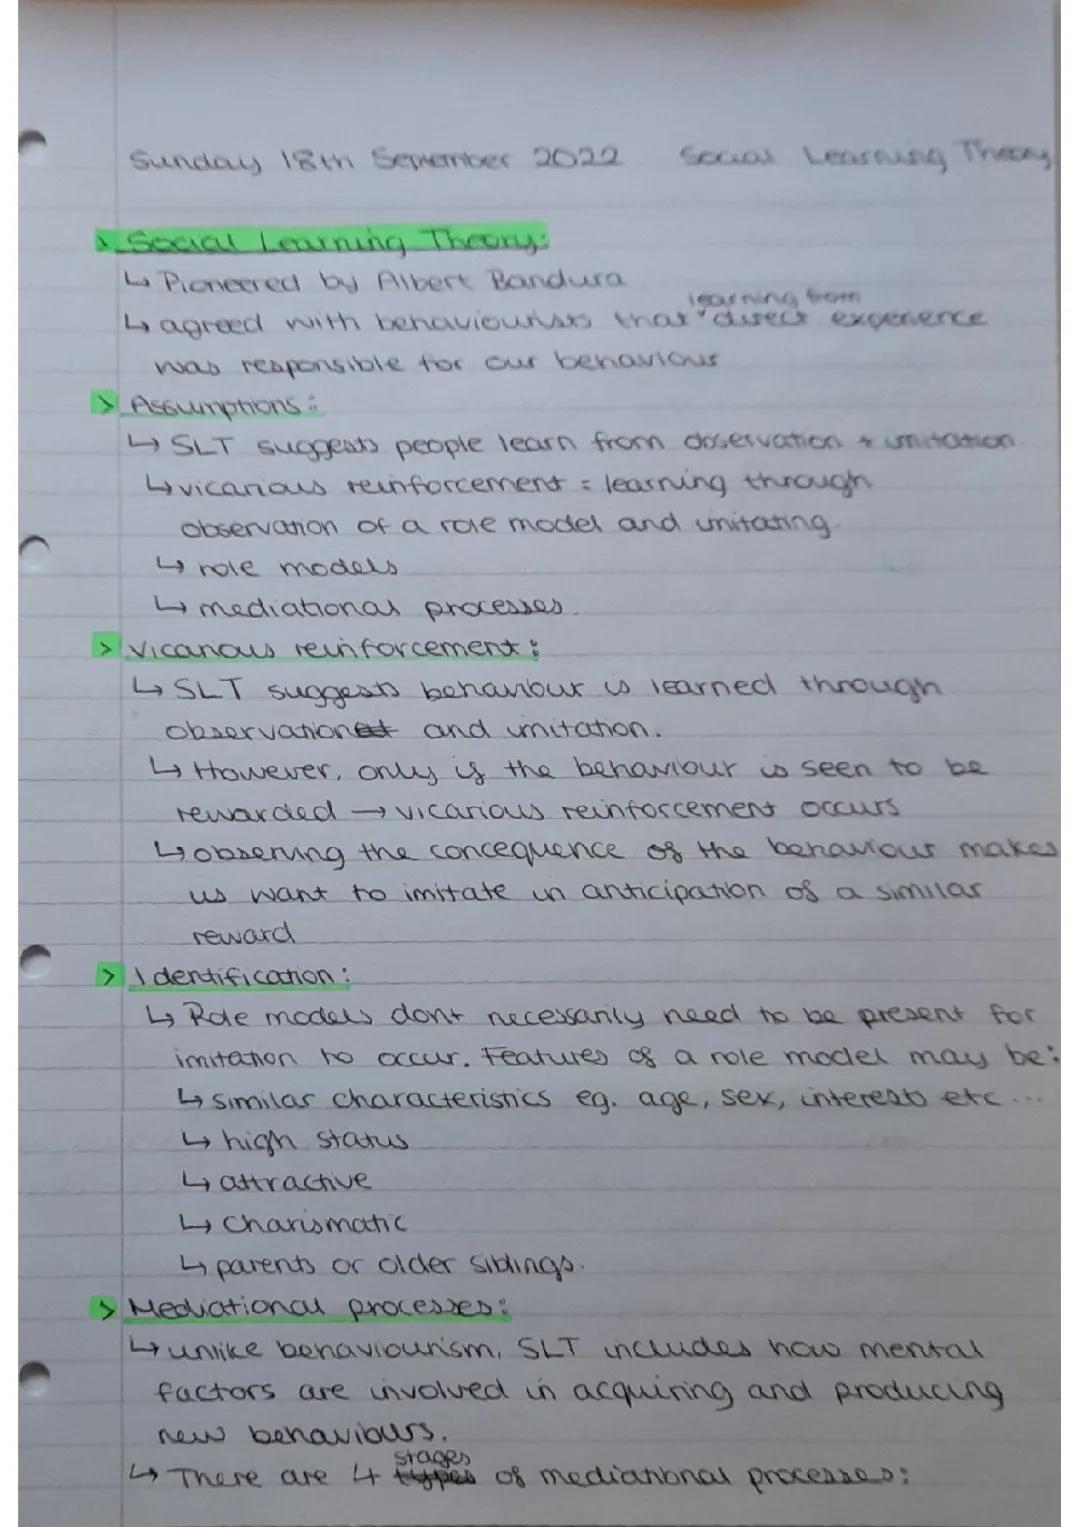 Sunday 18th September 2022 Social Learning Theory
> Social Learning Theory:
↳ Pioneered by Albert Bandura
learning from
↳ agreed with behaviourists that direct experience
was responsible for our behaviour
> Assumptions:
↳ SLT suggests people learn from observation + imitation
↳ vicarious reinforcement = learning through
observation of a role model and imitating.
↳ role models
↳ mediational processes.
> Vicarious reinforcement:
↳ SLT suggests behaviour is learned through
observation and imitation.
↳ However, only if the behaviour is seen to be
rewarded → vicarious reinforcement occurs
↳ observing the concequence of the behaviour makes
us want to imitate in anticipation of a similar
reward
> Identification:
↳ Role models dont necessarily need to be present for
imitation to occur. Features of a role model may be:
↳ similar characteristics eg. age, sex, interests etc...
↳ high status
↳ attractive
↳ Charismatic
↳ parents or older siblings.
> Mediational processes:
↳ unlike behaviourism, SLT includes how mental
factors are involved in acquiring and producing
new behaviours.
stages
↳ There are 4 types of mediational processes: